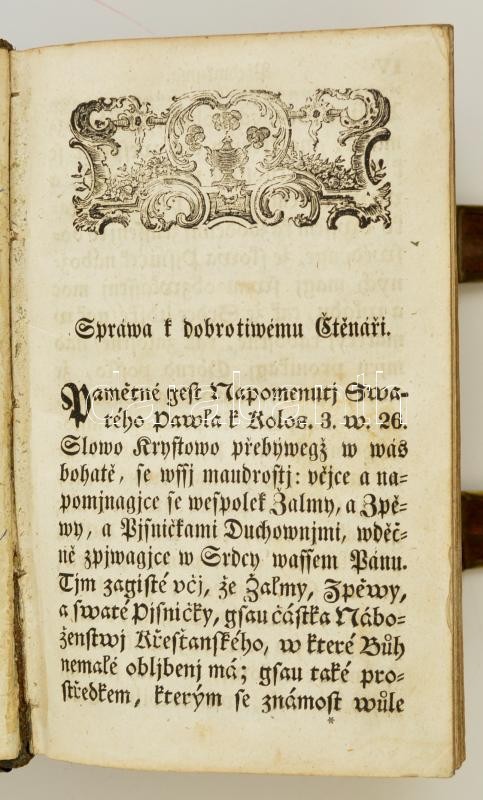 Spráwa k dobrotiwému Čtěnáři.
Pamětné gest Napomenutj Swa-
tého Pawła k Kolos. 3. w. 26.
Slowo Krystowo přebýwegž w wás
bohatě, se wssj maudrostj: včjce a na-
pomjnagjce se wespolek Žalmy, a Zpě-
wy, a Pjsničkami Duchownjmi, wděč-
ně zpjwagjce w Srdcy wassem Pánu.
Tjm zagisté včj, že Žalmy, Zpěwy,
a swaté Pjsničky, gsau částka Nábo-
ženstwj Křesťanského, w které Bůh
nemałé obljbenj má; gsau také pro-
středkem, kterým se známost wůle
*